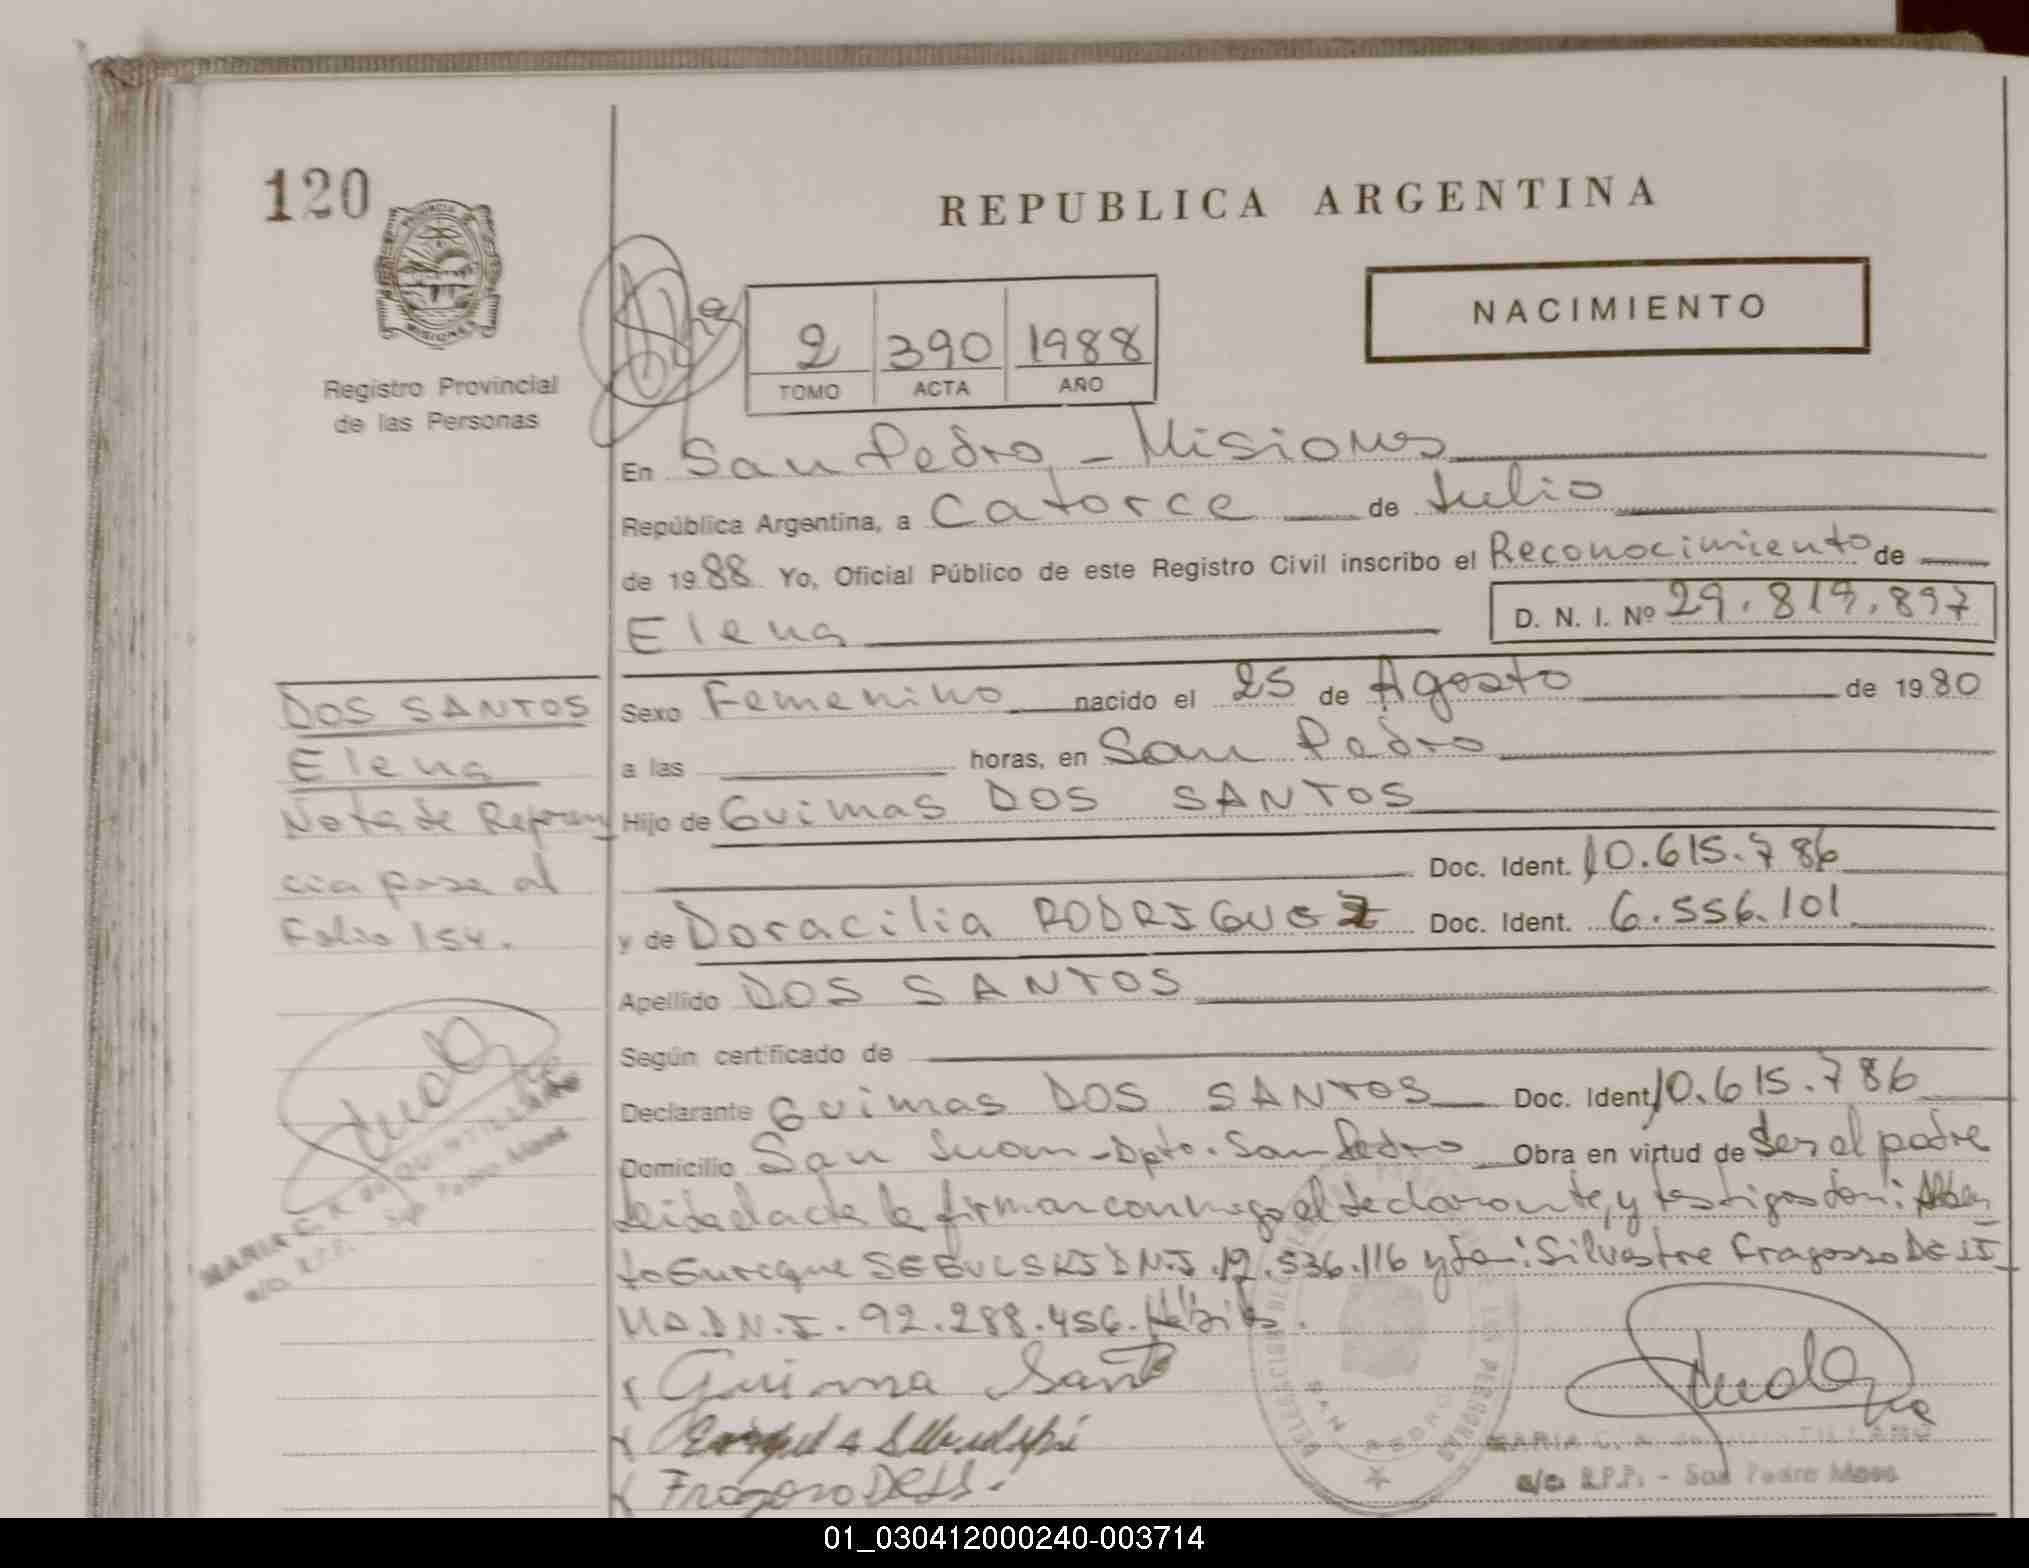 120
REPUBLICA ARGENTINA
NACIMIENTO
MISIONES
Registro Provincial
de las Personas
2 390 1988
TOMO ACTA AÑO
En San Pedro - Misiones
República Argentina, a Catorce de Julio
de 1988 Yo, Oficial Público de este Registro Civil inscribo el Reconocimiento de
Elena
D. N. I. Nº 29.819.897
DOS SANTOS
Elena
Nota de Referen
cia pasa al
Folio 154.
Sexo Femenino nacido el 25 de Agosto de 1980
a las horas, en San Pedro
Hijo de Guimas DOS SANTOS
Doc. Ident. 10.615.786
y de Doracilia RODRIGUEZ Doc. Ident. 6.556.101
Apellido DOS SANTOS
Según certificado de
Declarante Guimas DOS SANTOS Doc. Ident. 10.615.786
Domicilio San Juan - Dpto. San Pedro Obra en virtud de Ser el padre
leida el acta la firman conmigo el declarante, y testigos don: Alber
to Enrique SEBULSKI D.N.I. 12.536.116 y don: Silvestre Fragosso DE LI
MA D.N.I. 92.288.456.
Guima Sant
Fragoso DELI.
SAN PEDRO
MARIA
a/c R.P.P. - San Pedro Mnes
01_030412000240-003714